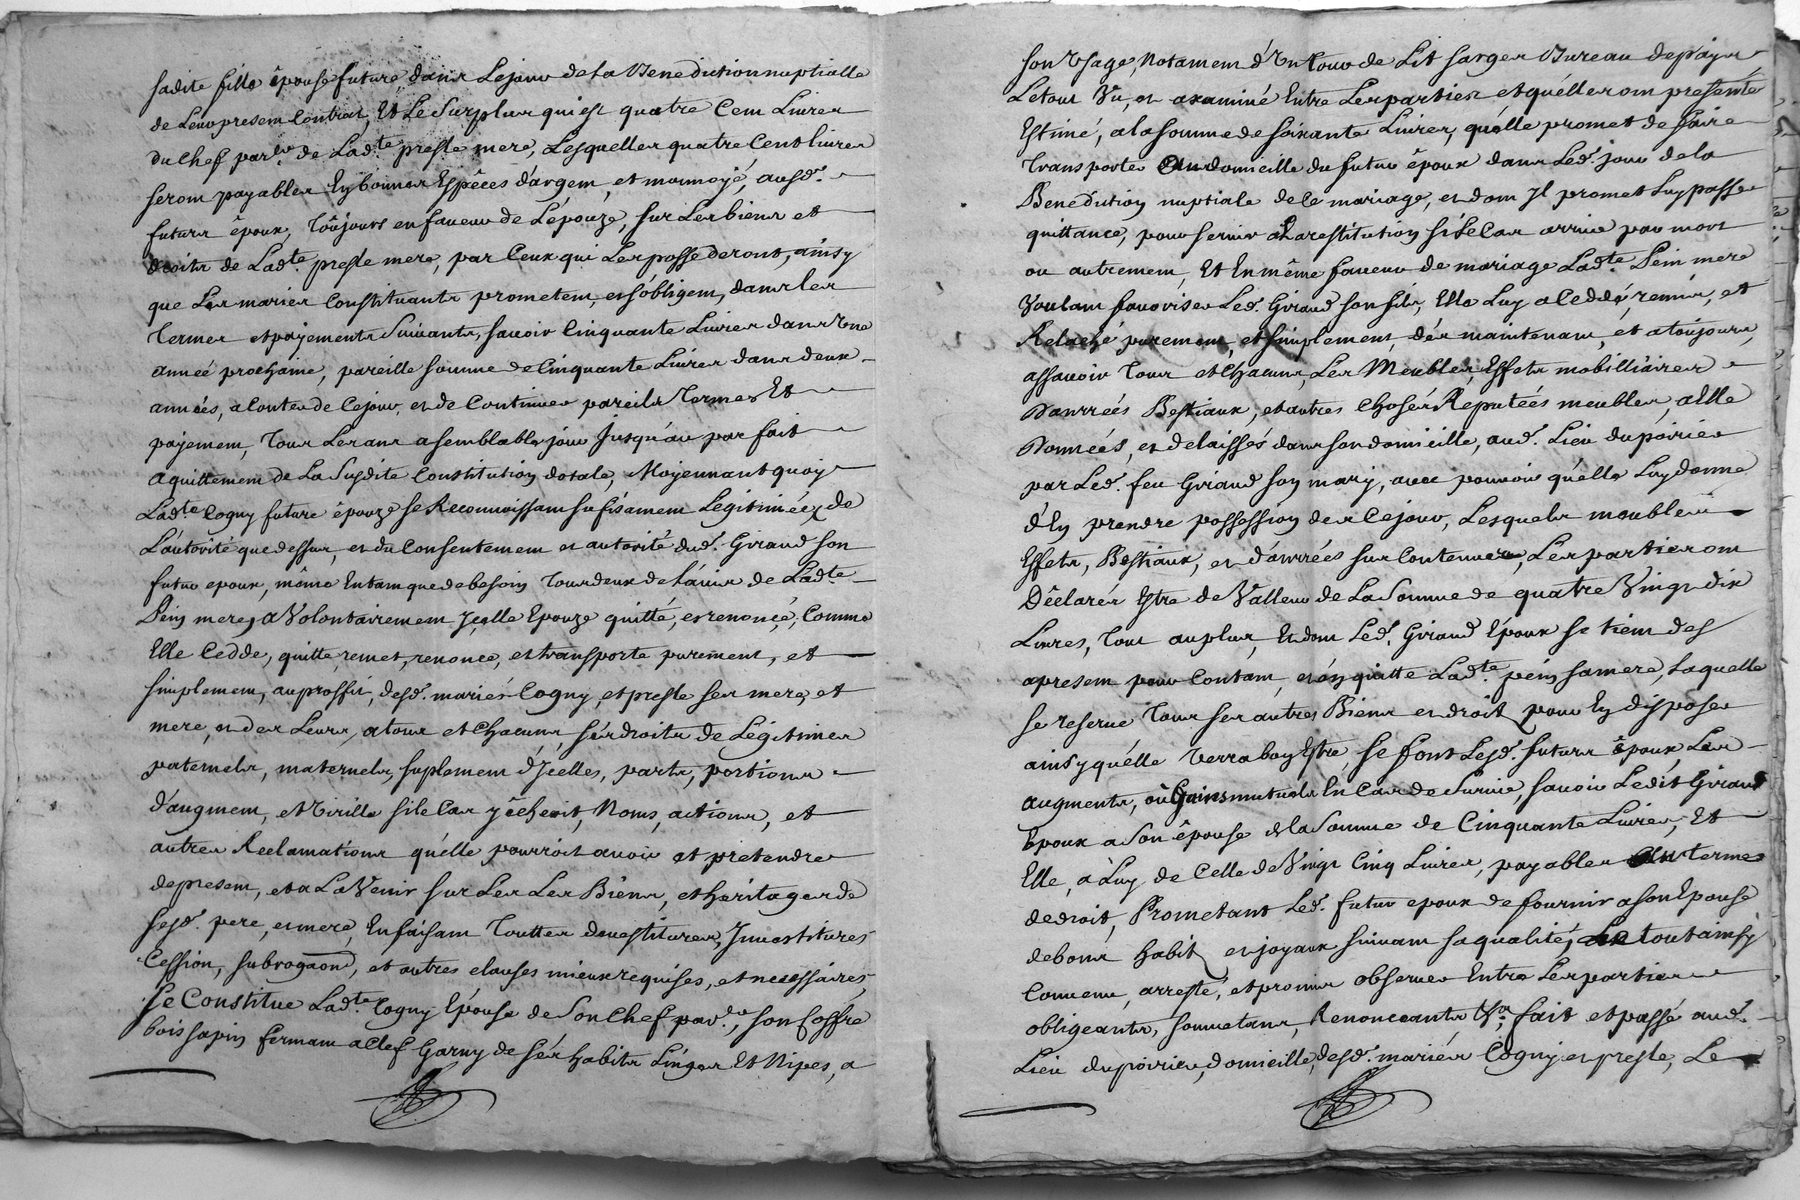 sadite fille épouse future, dans Lejour de la Benediction nuptialle
de Leur present Contrat, Et Le Surplus qui est quatre Cent Livres
du Chef par.er de Lad.te presle mere, Lesquelles quatre Cent livres
seront payables En bonnes Espêces d'argent, et monnoyé, ausd.
futurs époux, Toûjours en faveur de L'épouze, sur Les biens et
droits de Lad.te presle mere, par Ceux qui Les possederont, ainsy
que Les mariés Constituants prometent, et s'obligent, dans les
Termes et payements Suivants, savoir Cinquante Livres dans Une
année prochaine, pareille somme de Cinquante Livres dans deux
années, a Conter de Cejour, et de Continuer pareils Termes Et
payement, Tous Les ans a semblable jour Jusqu'au parfait
aquittement de La Susdite Constitution dotale, Moyennant quoy
Lad.te Cogny future épouze se Reconnoissant sufisament Legitimée, de
L'autorité que dessus, et du Consentement et autorité dud. Giraud son
futur epoux, même Entant que de besoin Tous deux de L'avis de Lad.te
Pein mere, a Volontairement Jcelle Epouze quitté, et renoncé, Comme
Elle Cedde, quitte, remet, renonce, et transporte purement, et
simplement, au proffit, desd. mariés Cogny, et presle ses pere, et
mere, et des Leurs, a tous et Chacuns, sés droits de Légitimes
paternels, maternels, suplement d'Jcelles, parts, portions
d'augment, et Virille si le Cas y êcheoit, Noms, actions, et
autres Reclamations qu'elle pourroit avoir et pretendre
de present, et a L'aVenir sur Les Les Biens, et héritages de
sesd. pere, et mere, En faisant Touttes devestitures, Jnvestitures
Cession, subrogaon, et autres clauses mieux requises, et necessaires,
Se Constitue Lad.te Cogny Epouse de Son Chef par.er, son Coffre
bois sapin fermant a Clef Garny de sés habits Linges Et Nipes, a
son Usage, Notament d'Un tour de Lit sarge Bureau de païs
Letout Vu, et examiné Entre Les parties et qu'elles ont presenté
Estimé, a la somme de soixante Livres, qu'elle promet de faire
transporter au domicille du futur époux dans Led. jour de la
Benediction nuptiale de le mariage, et dont Jl promet Luy passer
quittance, pour servir a La restitution si Le Cas arrive par mort
ou autrement, Et En même faveur de mariage Lad.te Pein mere
Voulant favoriser Led. Giraud son fils, Elle Luy a Ceddé, remis, et
Relaché purement, et simplement, dés maintenant, et a toujours,
assavoir Tous et Chacuns, Les Meubles, Effets mobilliaires
Danrrées Bestiaux, et autres Chosés Réputées meubles, a Elle
Donnéés, et delaissés dans son domicille, aud. Lieu du poirier
par Led. feu Giraud son mary, avec pouvoir qu'elle Luy donne
d'En prendre possession dés Cejour, Lesquels meubles
Effets, Bestiaux, et danrrées sur Contenues, Les parties ont
Déclarés Estre de Valleur de La Somme de quatre Vingt dix
Livres, Tout au plus, Et dont Led. Giraud Epoux se tient des
apresent pour Contant, et en quitte Lad.te pein sa mere, Laquelle
se reserve Tous ses autres Biens et droit, pour En disposer
ainsy qu'elle Verra bon Estre, se font Lesd. futurs époux Les
augments, où Gains mutuels En Cas de Survie, savoir Ledit Giraud
Epoux a Son épouse de la Somme de Cinquante Livres, Et
Elle, a Luy de Celle de Vingt Cinq Livres, payables au terme
de droit, Prometant Led. futur epoux de fournir a son Epouse
de bons habits et joyaux suivant sa qualité, Le tout ainsy
Convenu, arresté, et promis observer Entre Les parties
obligeants, soumetans, Renonceants &a, fait et passé aud.
Lieu du poirier, domicille, desd. mariés Cogny et presle, Le